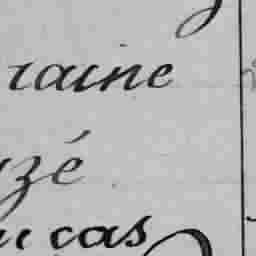 raine
zé
u cas